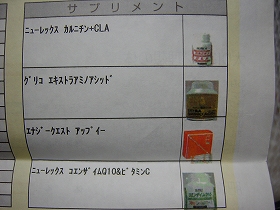 サプリメント
ニューレックス カルニチン+CLA
グリコ エキストラアミノアシッド
エナジークエスト アップイー
ニューレックス コエンザイムQ10&ビタミンC